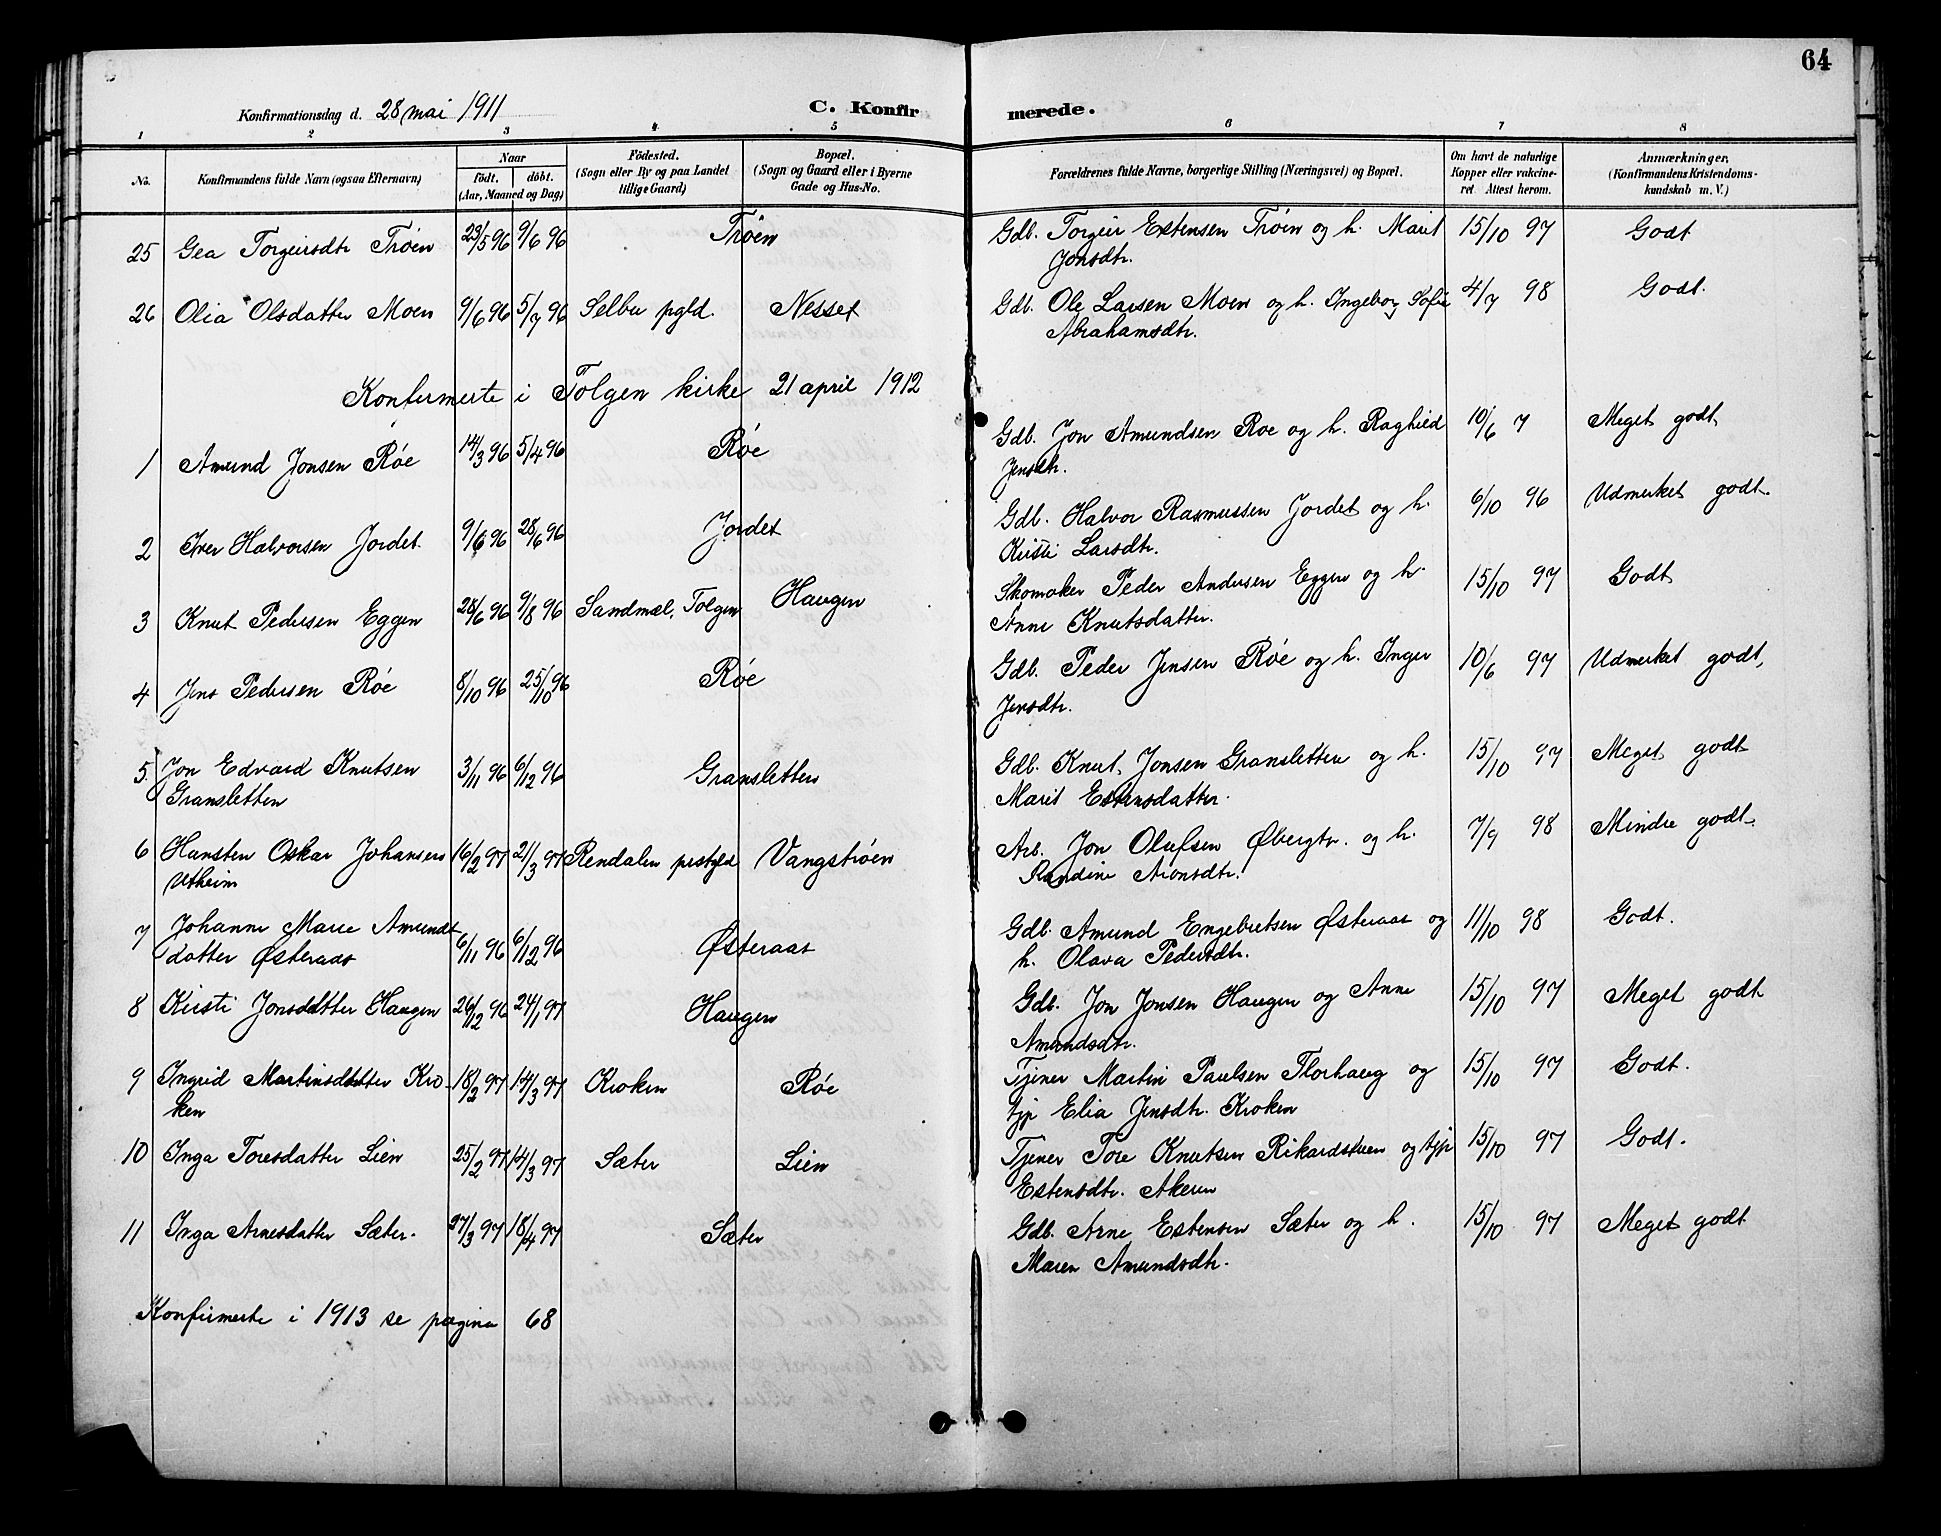 64
Konfirmationsdag d. 28 mai 1911
C. Konfirmerede.
1 2 3 4 5 6 7 8
No.
Konfirmandens fulde Navn (ogsaa Efternavn)
Naar
födt. döbt.
(Aar, Maaned og Dag)
Födested.
(Sogn eller By og paa Landet
tillige Gaard)
Bopæl.
(Sogn og Gaard eller i Byerne
Gade og Hus-No.
Forældrenes fulde Navne, borgerlige Stilling (Næringsvei) og Bopæl.
Om havt de naturlige
Kopper eller vakcine-
ret. Attest herom.
Anmærkninger.
(Konfirmandens Kristendoms-
kundskab m. V.)
25 Gea Torgeirsdtr Tröen 23/5 96 9/6 96 Tröen Gdb. Torgeir Estensen Tröen og h. Marit 15/10 97 Godt
Jonsdtr.
26 Olia Olsdatter Moen 9/6 96 5/7 96 Selbu pgld. Nesset Gdb. Ole Larsen Moen og h. Ingeborg Sofie 4/7 98 Godt.
Abrahamsdtr.
Konfirmerte i Tolgen kirke 21 april 1912
1 Amund Jonsen Röe 14/3 96 5/4 96 Röe Gdb. Jon Amundsen Roe og h. Raghild 10/6 7 Meget godt
Jensdtr.
2 Iver Halvorsen Jordet. 9/6 96 28/6 96 Jordet Gdb. Halvor Rasmussen Jordet og h. 6/10 96 Udmerket godt.
Kristi Larsdtr.
3 Knut Pedersen Eggen 28/6 96 9/8 96 Sandmæl, Tolgen Haugen Skomaker Peder Andersen Eggen og h. 15/10 97 Godt
Anne Knutsdatter.
4 Jens Pedersen Röe 8/10 96 25/10 96 Röe Gdb. Peder Jensen Röe og h. Inger 10/6 97 Udmerket godt,
Jensdtr.
5. Jon Edvard Knutsen 3/11 96 6/12 96 Gransletten Gdb. Knut Jonsen Gransletten og h. 15/10 97 Meget godt
Gransletten Marit Estensdatter.
6 Hansten Oskar Johansen 16/2 97 21/3 97 Rendalen prestgld Vangströen Arb. Jon Olufsen Øbergtr. og h. 7/9 98 Mindre godt.
Utheim Randine Aronsdtr.
7 Johanne Marie Amunds 6/11 96 6/12 96 Østeraas Gdb. Amund Engebretsen Østeraas og 11/10 98 Godt.
datter Østeraas h. Olava Pedersdtr.
8 Kirsti Jonsdatter Haugen 26/12 96 24/1 97 Haugen Gdb. Jon Jonsen Haugen og Anne 15/10 97 Meget godt
Amundsdtr.
9 Ingrid Martinsdatter Kro- 18/2 97 14/3 97 Kroken Röe Tjener Martin Paulsen Florhaug og 15/10 97 Godt.
ken tjp Elia Jensdtr. Kroken
10 Inga Toresdatter Lien 25/2 97 14/3 97 Sæter Lien Tjener Tore Knutsen Rikardstuen og tjp 15/10 97 Godt.
Estensdtr. Akeren
11 Inga Arnesdatter Sæter. 27/3 97 18/4 97 Sæter Gdb. Arne Estensen Sæter og h. 15/10 97 Meget godt
Maren Amundsdtr.
Konfirmerte i 1913 se pagina 68